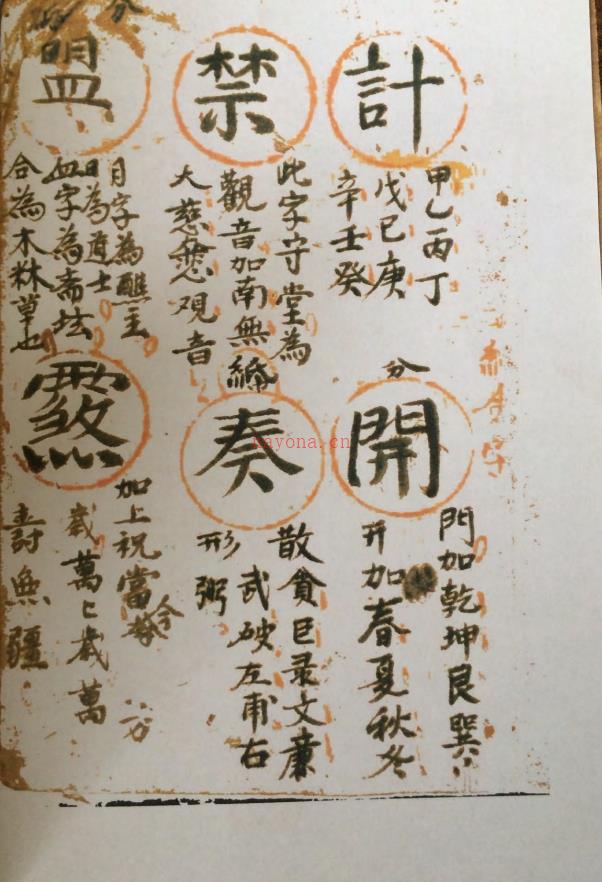 計
甲乙丙丁
戊己庚
辛壬癸
禁
此字守堂為
觀音加南無
大慈悲观音
盟
月字為醮主
日為道士
血字為斋坛
合為木林草也
分
開
門加乾坤艮巽
开加春夏秋冬
奏
散貪巨录文廉
武破左甫右
形弼
加上祝當今
歲萬匕歲萬
壽無疆
nayona.cn